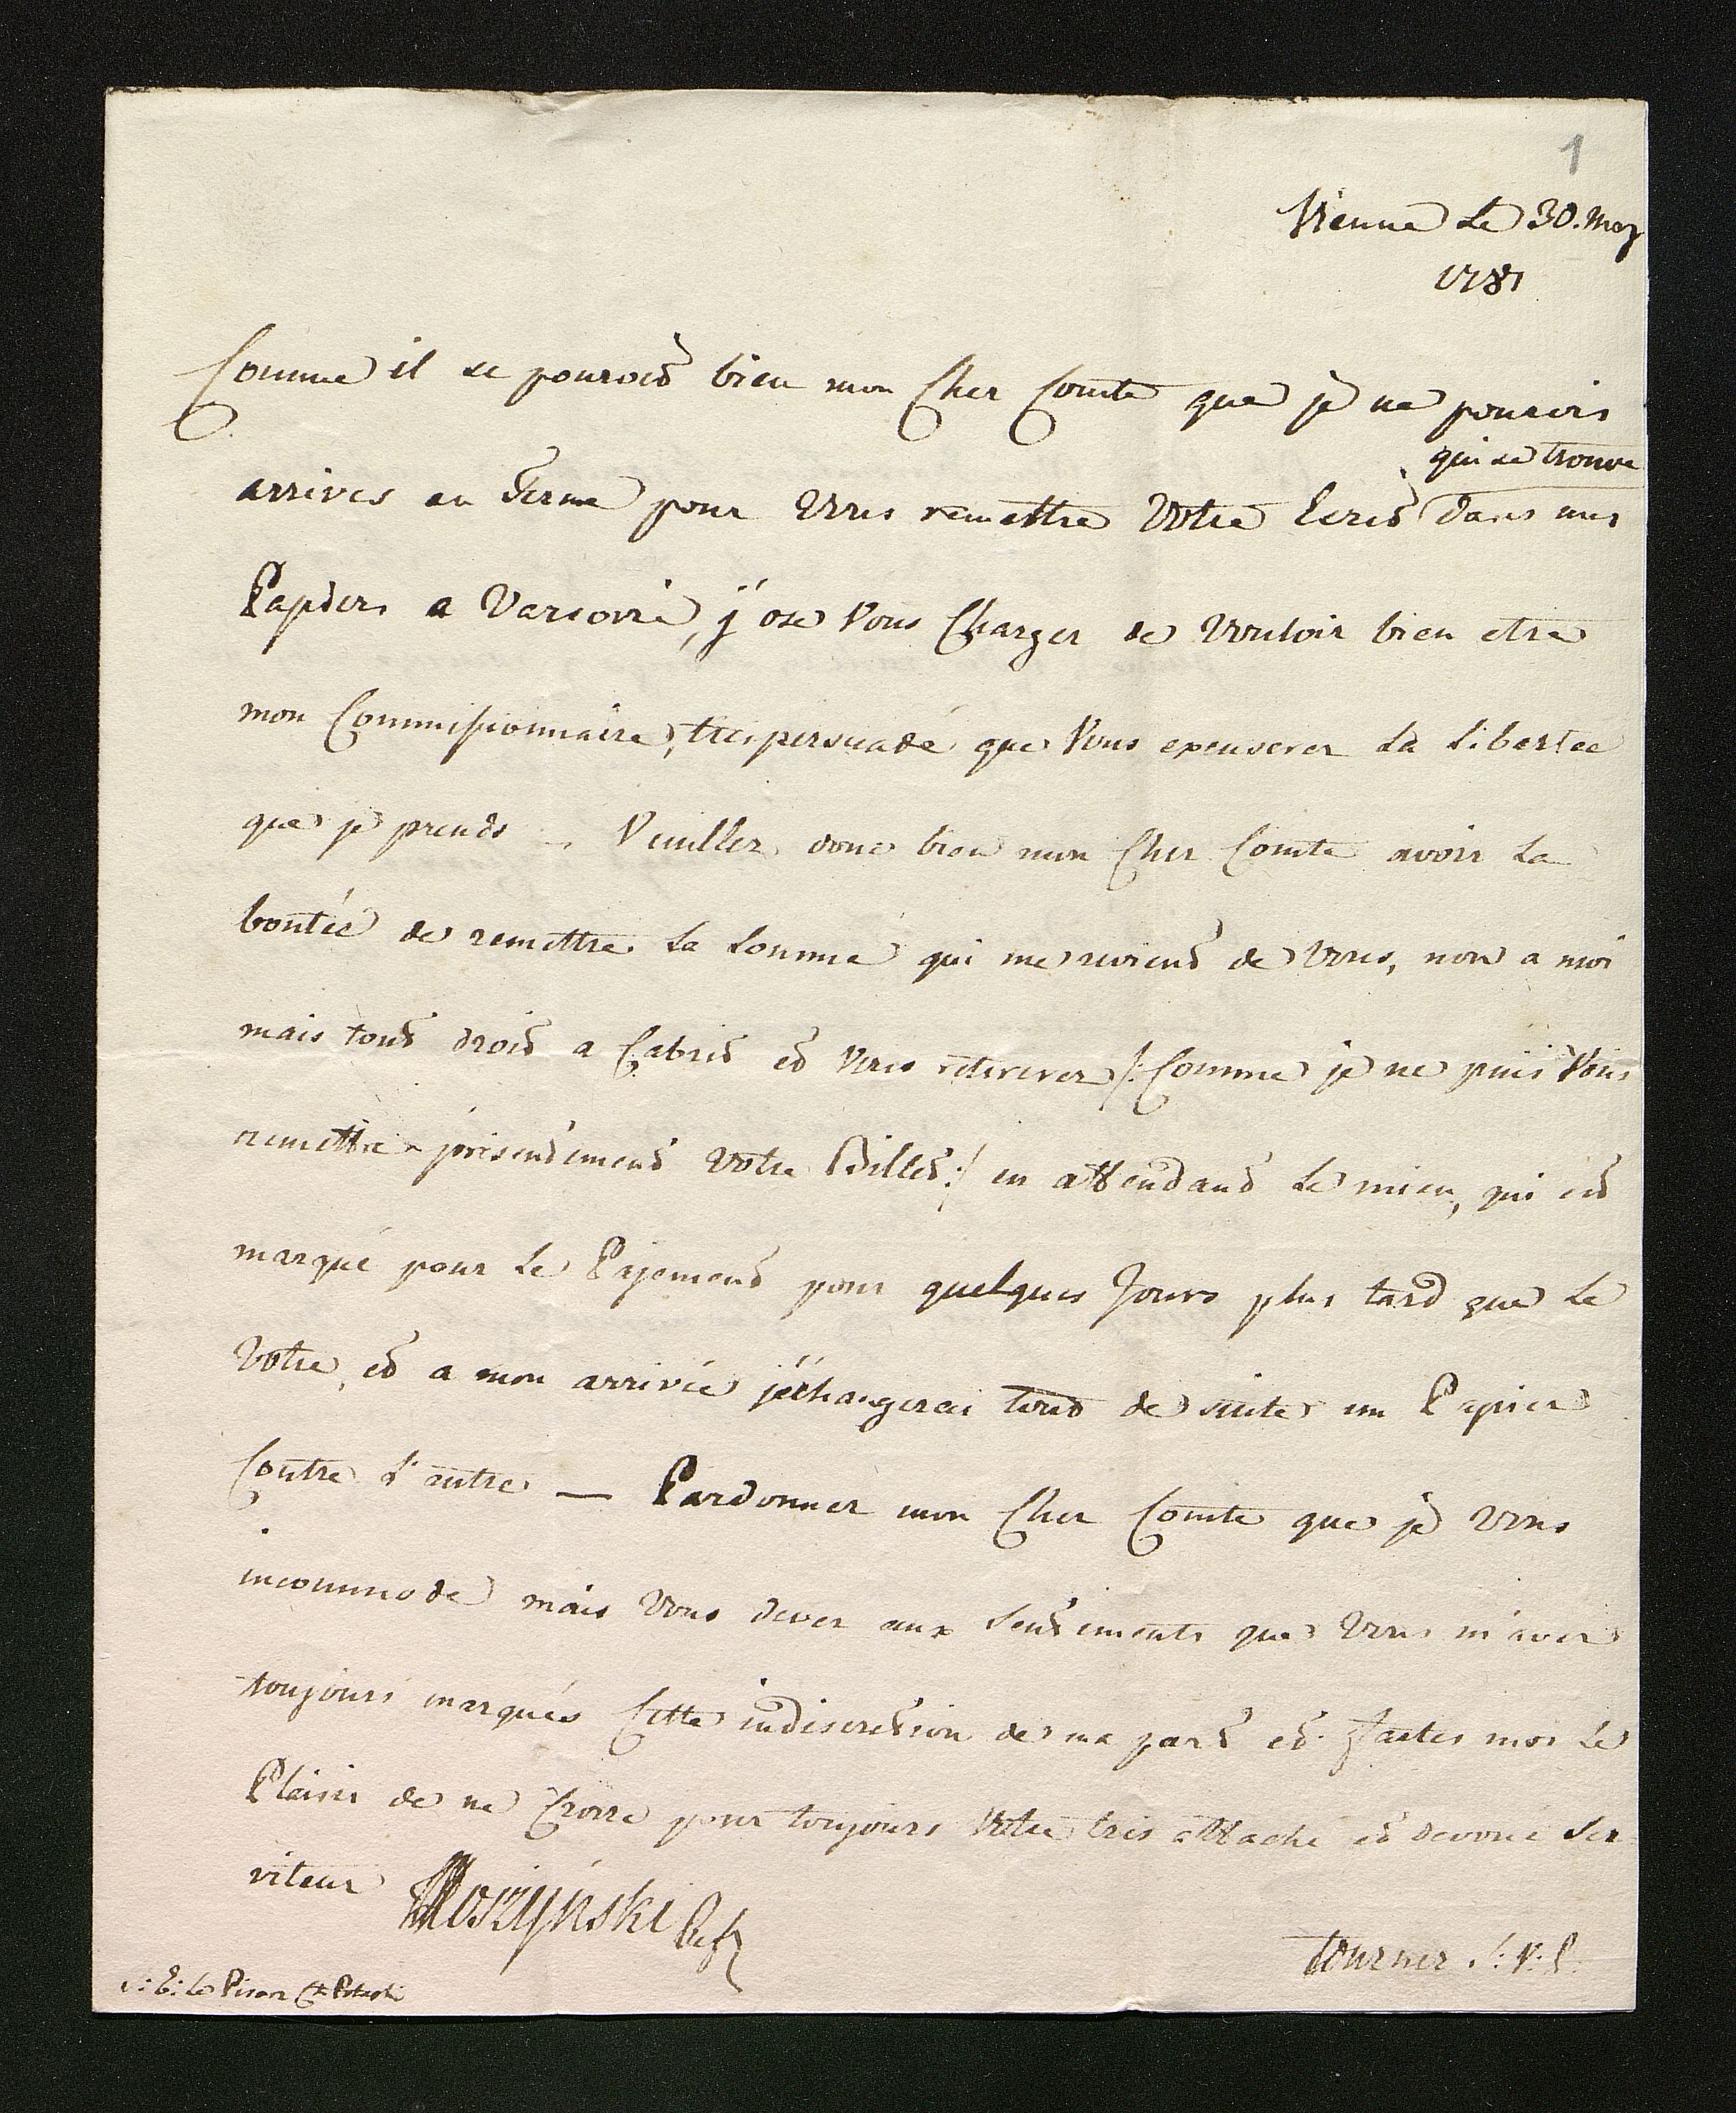 1
Vienne Le 30. May
1781
Comme il se pouroit bien mon Cher Comte que je ne pourois
qui se trouve
arriver au Terme pour Vous remettre Votre Ecrit dans mes
Papiers a Varsovie, j'ose Vous Charger de Vouloir bien etre
mon Commissionnaire, tres persuadé que Vous excuserer La Libertee
que je prends — Veuiller donc bien mon Cher Comte avoir La
bontée de remettre La Somme qui me revient de Vous, non a moi
mais tout droit a Cabrit et Vous retirerer /: Comme je ne puis Vous
remettre présentement Votre Billet :/ en attendant Le mien, qui est
marqué pour Le Pajement pour quelques Jours plus tard que Le
Votre, et a mon arrivée j'échangerai tout de suite un Papier
Contre L'autre — Pardonner mon Cher Comte que je Vous
incommode mais Vous dever aux Sentiments que Vous m'aver
toujours marqués Cette indiscretion de ma part et faites moi Le
Plaisir de me Croire pour toujours Votre tres attaché et devoué Ser
viteur Moszyński
Tourner S: V: P:
S: E: Le Pisarz Ct Potocki